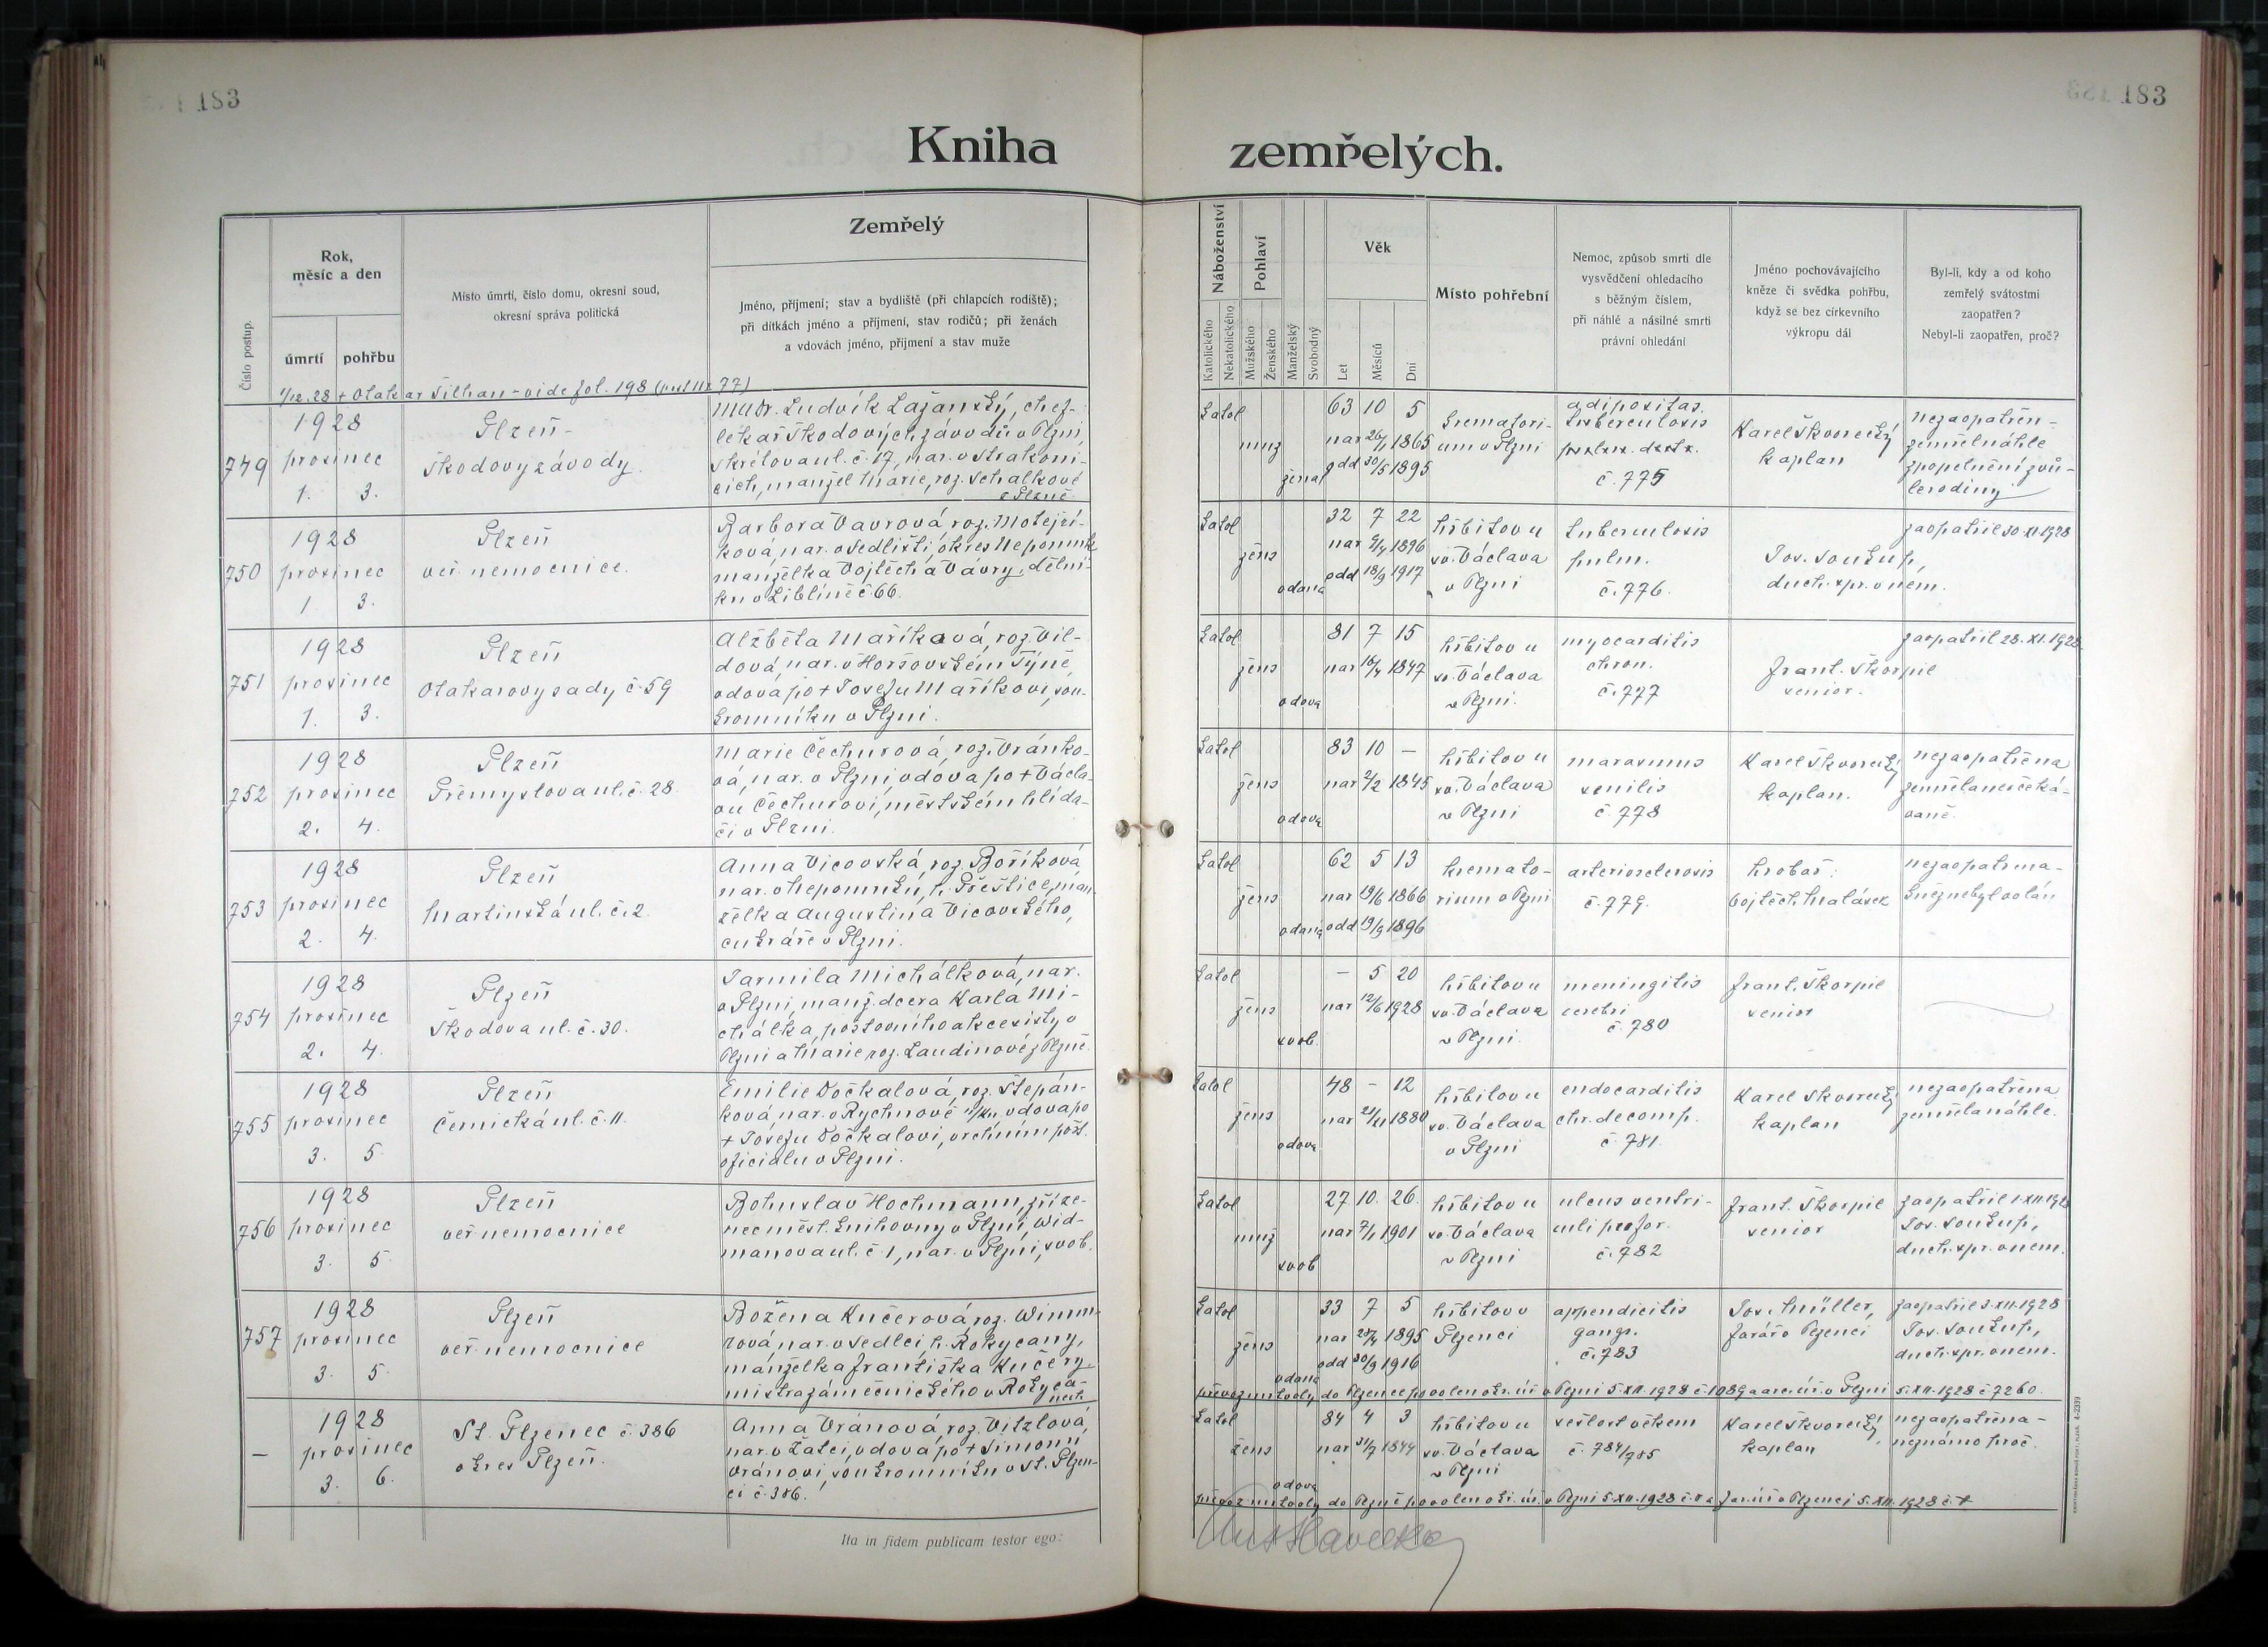 183
183
Kniha zemřelých.
Číslo postup.
Rok,
měsíc a den
úmrtí
pohřbu
Místo úmrtí, číslo domu, okresní soud,
okresní správa politická
Zemřelý
Jméno, příjmení; stav a bydliště (při chlapcích rodiště);
při dítkách jméno a příjmení, stav rodičů; při ženách
a vdovách jméno, příjmení a stav muže
Náboženství
Katolického
Nekatolického
Pohlaví
Mužského
Ženského
Manželský
Svobodný
Věk
Let
Měsíců
Dní
Místo pohřební
Nemoc, způsob smrti dle
vysvědčení ohledacího
s běžným číslem,
při náhlé a násilné smrti
právní ohledání
Jméno pochovávajícího
kněze či svědka pohřbu,
když se bez církevního
výkropu dál
Byl-li, kdy a od koho
zemřelý svátostmi
zaopatřen?
Nebyl-li zaopatřen, proč?
1/12.28 + Otakar Šilhan - vide fol. 198
749
1928
prosinec
1. 3.
Plzeň -
Škodovy závody.
MUDr. Ludvík Lažanský, chef-
lékař Škodových závodů v Plzni,
Skrétova ul. č. 17, nar. v Strakoni-
cích, manžel Marie, roz. Schalkové
z Plzně
katol
muž
ženat
63 10 5
nar 26/1 1865
odd 30/5 1895
krematori-
um v Plzni
adipositas.
tuberculosis
č. 775
Karel Škvorecký
kaplan
nezaopatřen -
zemřel náhle
zpopelnění z vů-
le rodiny
750
1928
prosinec
1 3.
Plzeň
veř. nemocnice.
Barbora Vávrová, roz. Motejzí-
ková, nar. v Sedlišti, okres Nepomuk
manželka Vojtěcha Vávry, dělní-
ka v Liblíně č. 66.
katol
žens
vdaná
32 7 22
nar 9/4 1896
odd 18/9 1917
hřbitov u
sv. Václava
v Plzni
tuberculosis
pulm.
č. 776.
Jos. Soukup,
duch. spr. v nem.
zaopatřil 30 XI 1928
751
1928
prosinec
1. 3.
Plzeň
Otakarovy sady č. 59
Alžběta Maříková, roz. Vil-
dová, nar. v Horšovském Týně,
vdova po + Josefu Maříkovi, sou-
kromníku v Plzni.
katol
žens
vdova
81 7 15
nar 16/4 1847
hřbitov u
sv. Václava
v Plzni.
myocarditis
chron.
č. 777
Frant. Škorpil
senior.
zaopatřil 28. XI. 1928
752
1928
prosinec
2. 4.
Plzeň
Přemyslova ul. č. 28.
Marie Čechurová, roz. Vránko-
vá, nar. v Plzni, vdova po + Václa-
vu Čechurovi, městském hlída-
či v Plzni.
katol
žens
vdova
83 10 -
nar 2/2 1845
hřbitov u
sv. Václava
v Plzni
marasmus
senilis
č. 778
Karel Škvorecký
kaplan.
nezaopatřena
zemřela neočeká-
vaně.
753
1928
prosinec
2. 4.
Plzeň
Martinská ul. č. 2.
Anna Vicovská, roz. Boříková
nar. v Nepomuku, h. Přeštice, man-
želka Augustina Vicovského,
cukráře v Plzni.
katol
žens
vdaná
62 5 13
nar 19/6 1866
odd 19/9 1896
kremato-
rium v Plzni
arteriosclerosis
č. 779.
hrobař:
Vojtěch Malásek
nezaopatřena -
kněz nebyl volán
754
1928
prosinec
2. 4.
Plzeň
Škodova ul. č. 30.
Jarmila Michálková, nar.
v Plzni, manž. dcera Karla Mi-
chálka, poštovního akcesisty v
Plzni a Marie roz. Laudinové z Plzně.
katol
žens
svob.
- 5 20
nar 12/6 1928
hřbitov u
sv. Václava
v Plzni.
meningitis
cerebri
č. 780
Frant. Škorpil
senior
755
1928
prosinec
3. 5.
Plzeň
Černická ul. č. 11.
Emilie Dočkalová, roz. Štěpán-
ková, nar. v Rychnově n/Kn. vdova po
+ Josefu Dočkalovi, vrchním pošt.
oficiálu v Plzni.
katol
žens
vdova
48 - 12
nar 21/XI 1880
hřbitov u
sv. Václava
v Plzni
endocarditis
chr. decomp.
č. 781.
Karel Škvorecký
kaplan
nezaopatřena
zemřela náhle.
756
1928
prosinec
3. 5.
Plzeň
veř. nemocnice
Bohuslav Hochmann, zříze-
nec měst. knihovny v Plzni, Wid-
manova ul. č. 1, nar. v Plzni, svob.
katol
muž
svob
27 10. 26.
nar 7/1 1901
hřbitov u
sv. Václava
v Plzni
ulcus ventri-
culi perfor.
č. 782
Frant. Škorpil
senior
zaopatřil 1. XII. 1928
Jos. Soukup,
duch. spr. v nem.
757
1928
prosinec
3. 5.
Plzeň
veř. nemocnice
Božena Kučerová, roz. Wimm-
rová, nar. v Sedlci, h. Rokycany,
manželka Františka Kučery,
mistra zámečnického v Rokyca-
nech.
katol
žens
vdaná
33 7 5
nar 28/4 1895
odd 30/9 1916
hřbitov v
Plzenci
appendicitis
gangr.
č. 783
Jos. Müller,
farář v Plzenci
zaopatřil 3. XII. 1928
Jos. Soukup,
duch. spr. v nem.
převoz mrtvoly do Plzence povolen okr. úř. v Plzni 5. XII. 1928 č. 1089 a arc. úř. v Plzni 5. XII. 1928 č. 7260.
-
1928
prosinec
3. 6.
St. Plzenec č. 386
okres Plzeň.
Anna Vránová, roz. Vitzlová,
nar. v Žatci, vdova po + Šimonu
Vránovi, soukromníku v St. Plzen-
ci č. 386.
katol
žens
vdova
84 4 3
nar 31/7 1844
hřbitov u
sv. Václava
v Plzni
sešlost věkem
č. 784/785
Karel Škvorecký,
kaplan
nezaopatřena -
neznámo proč.
převoz mrtvoly do Plzně povolen okr. úř. v Plzni 5. XII. 1928 č. 8 a far. úř. v Plzenci 5. XII. 1928 č. +
Ita in fidem publicam testor ego: